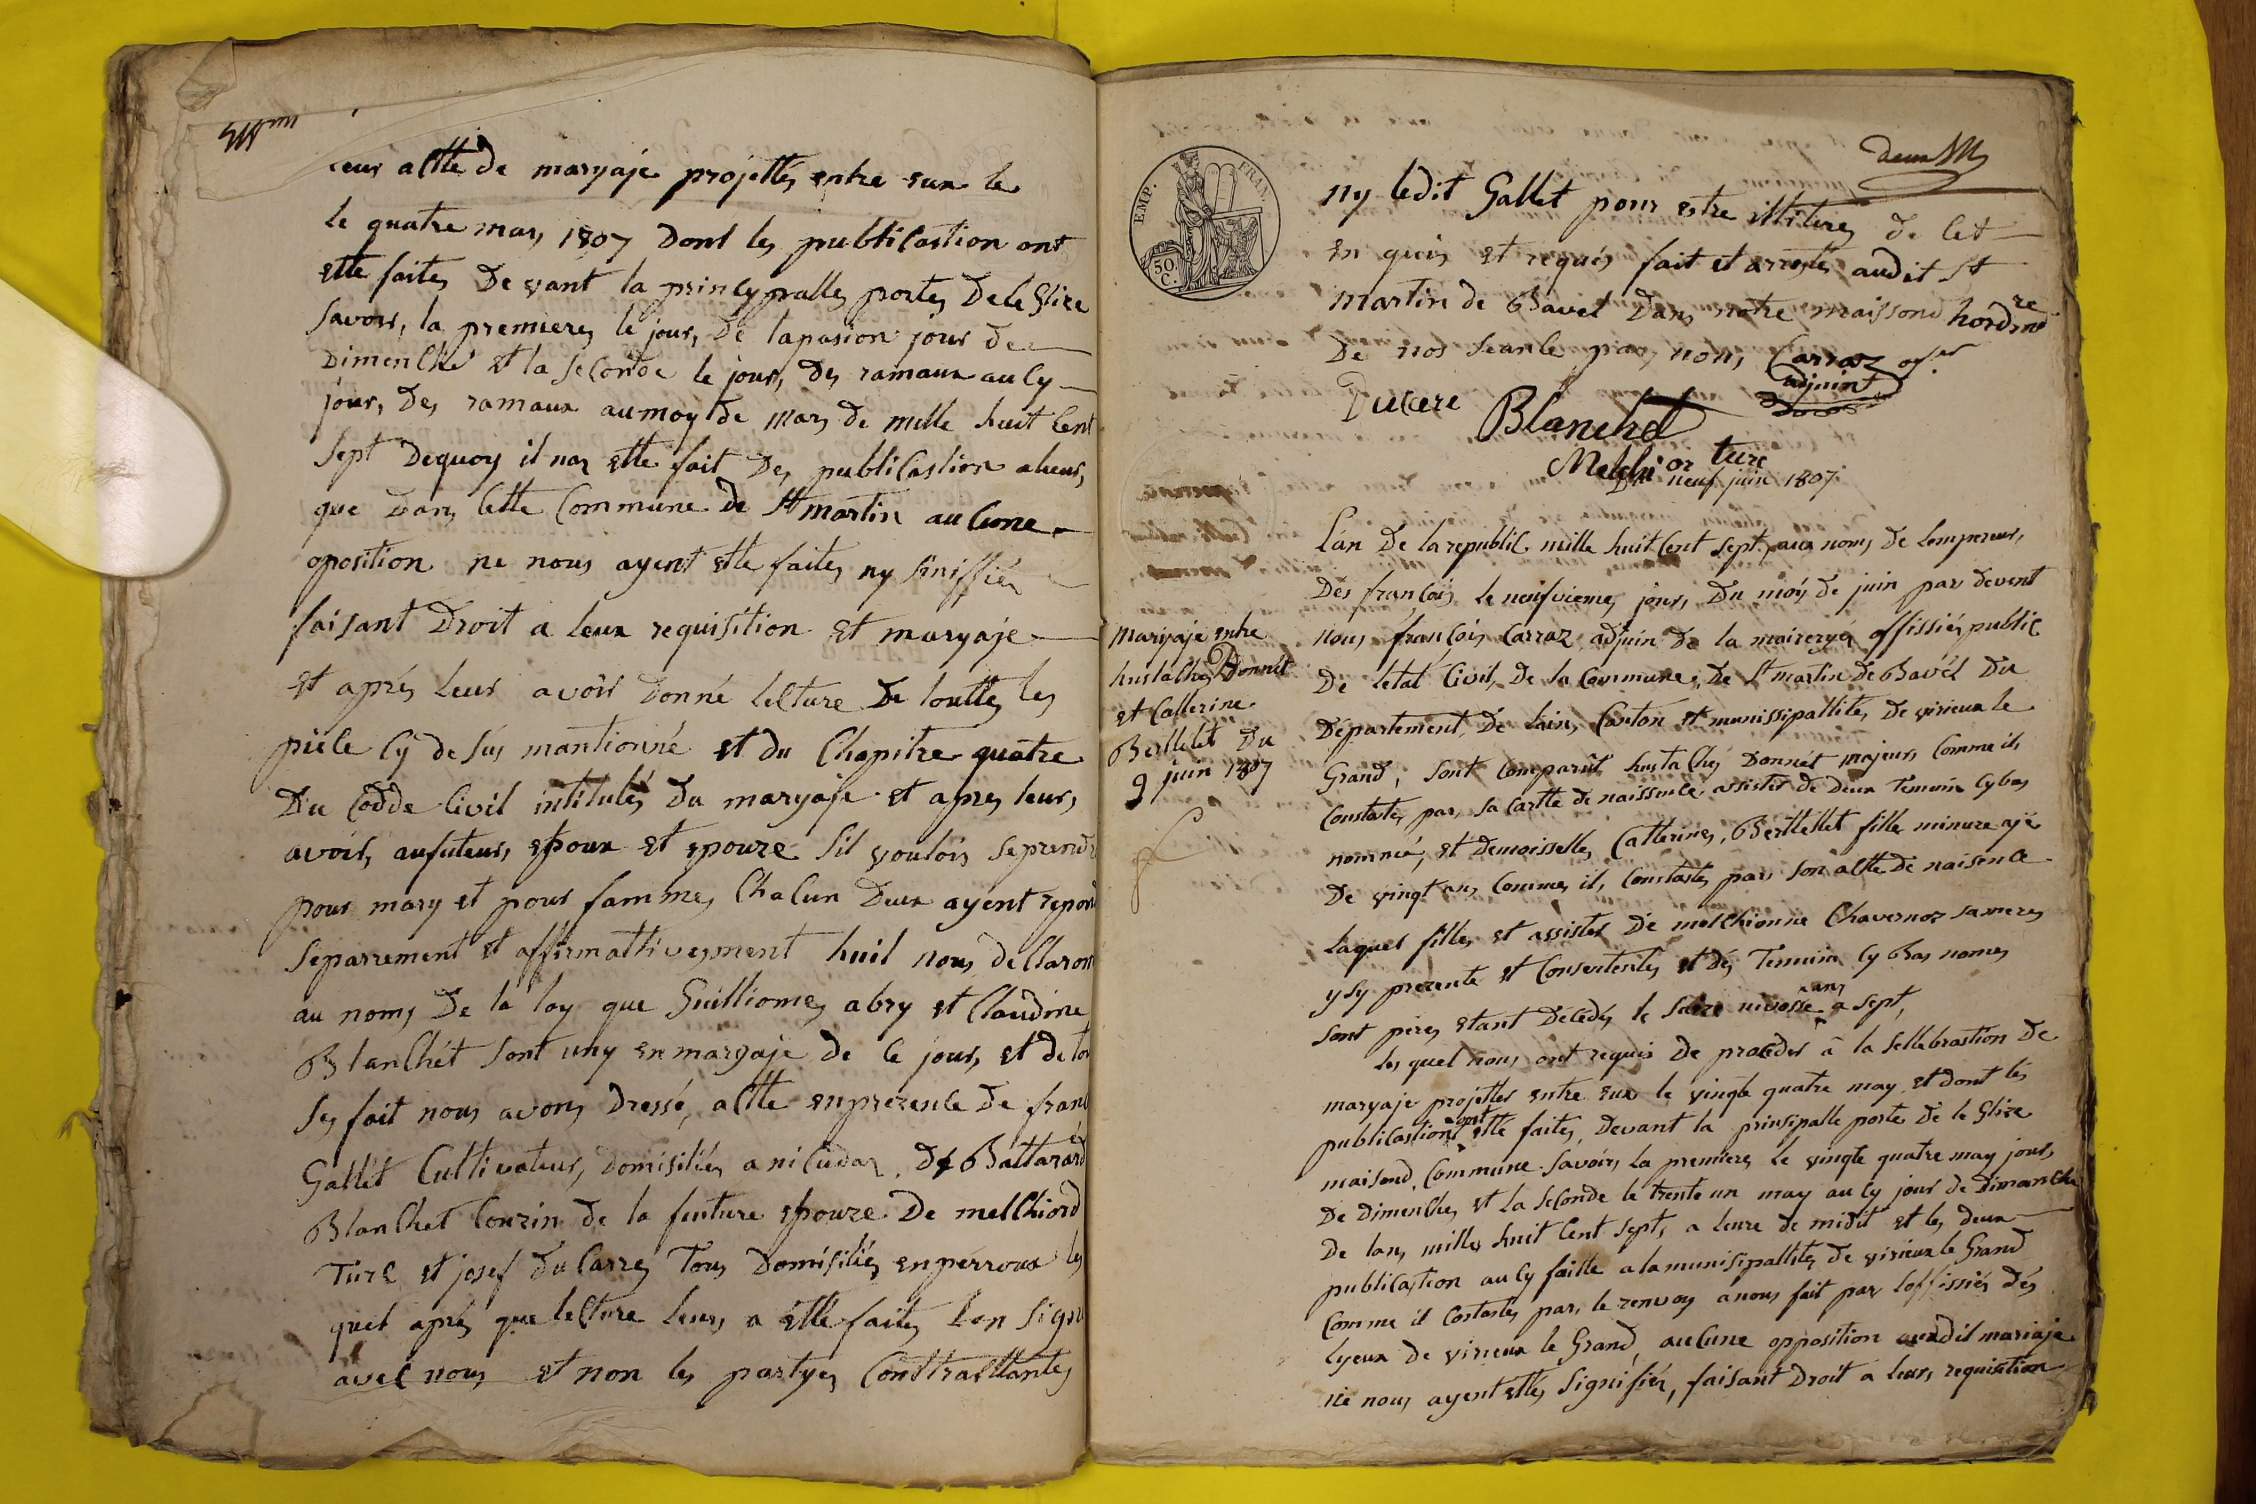 leur actte de maryaje projettes entre eux le
le quatre mars 1807 dont les publicastion ont
ette faites devant la princypalles portes de leglize
savoir, la premieres le jours de lapasion jour de
Dimenche et la seconde le jours des ramaux aucy
jours des ramaux aumoy de mars de mille huit cent
sept dequoy il nas ette fait des publicastion alieurs
que dans cette Commune de St martin aucune
oposition ne nous ayent ette faites ny siniffiés
faisant droit a leux requisition et maryaje
et aprés leur avoir donné lecture de touttes les
piéce cy desus mantionné et du Chapitre quatre
Du Codde Civil intitulés du maryaje et apres leurs
avoir, aufuteurs epoux et epouze sil vouloir seprendre
pour mary et pour famme, Chacun deux ayent repond
separrement et affirmattivement huit nous declaront
au noms De la loy que Guilliomes abry et Claudine
Blanchét sont uny enmaryaje de ce jours, et de tou
ses fait nous avons dressé, actte enprezence de franç
Gallét Cultivateurs, domisiliés anicudas, De Battarard
Blanchet Couzin de la futture epouze De melchiord
Turc et josef du Carres Tous Domisiliés enperroux les
quel aprés que lecture leurs a ette faites lon signé
avec nous et non les partyes Conttracttantes
deux
EMP. FRAN.
50 C.
ny ledit Gallet pour estre illiteres de cet
enquis et requis fait et arrestes audit St
martin de Bavel dans notre maisond hordinere
De nos seance par nous Carraz ofer
adjoint
Ducare Blanchet
Melchior turc
Du neuf juin 1807
Maryaje entre
hustaches Donnét
et Catterine
Berttelet Du
9 juin 1807
Lan De la republic mille huit Cent sept, aux noms de lempereur,
Dés françois le neufviemes jours, Du moy de juin par devent
nous françois Carraz adjuin de la maireryés offissiés public
De létat Civil, De la Commune, De St martin De Bavél Du
Département De lain, Canton et munissipallités De virieux le
Grand, sont comparût hustachés Donnét majeurs Comme il
Constates par sa cartte de naissence assistés de Deux Temoin Cybas
nommé, et Demoisselles Catterines Berttellet fille mineure ajé
De vingt ans Commes il Constastes par son actte de naisence
laquel filles et assistés De melchionne Chavernoz sa meres
ysy prezente et Consententes et dés Temoin cy Bas nomes
sont peres etant Decedés le saize nivosse ans a sept,
les quel nous ont requis De proceder â la sellebrastion De
maryaje projettes entre eux le vingte quatre may et dont lés
publicastion ont ette faites, Devant la prinsipalle porte de leglize
maisond Commune savoir, la premieres le vingte quatre may jours
De Dimenches et la seconde le trente un may aucy jour de Dimanche
De lans milles huit Cent sept, a leure de midit et les deux
publication aucy faitte a la munisipallités de virieux le Grand
Comme il Costastes par le renvoy anous fait par loffissiés dés
lyeux de virieux le Grand, aucune opposition audit mariaje
ne nous ayent ettes signifiés, faisant Droit a leurs requisition